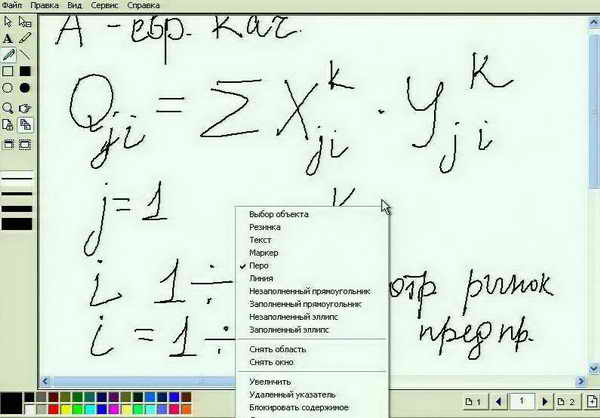 Файл Правка Вид Сервис Справка
A - евр. кач.
Q ji = Σ X ji k · Y ji k
j = 1
i 1 ÷
отр рынок
i = 1 ÷
предпр.
Выбор объекта
Резинка
Текст
Маркер
Перо
Линия
Незаполненный прямоугольник
Заполненный прямоугольник
Незаполненный эллипс
Заполненный эллипс
Снять область
Снять окно
Увеличить
Удаленный указатель
Блокировать содержимое
1 1 2